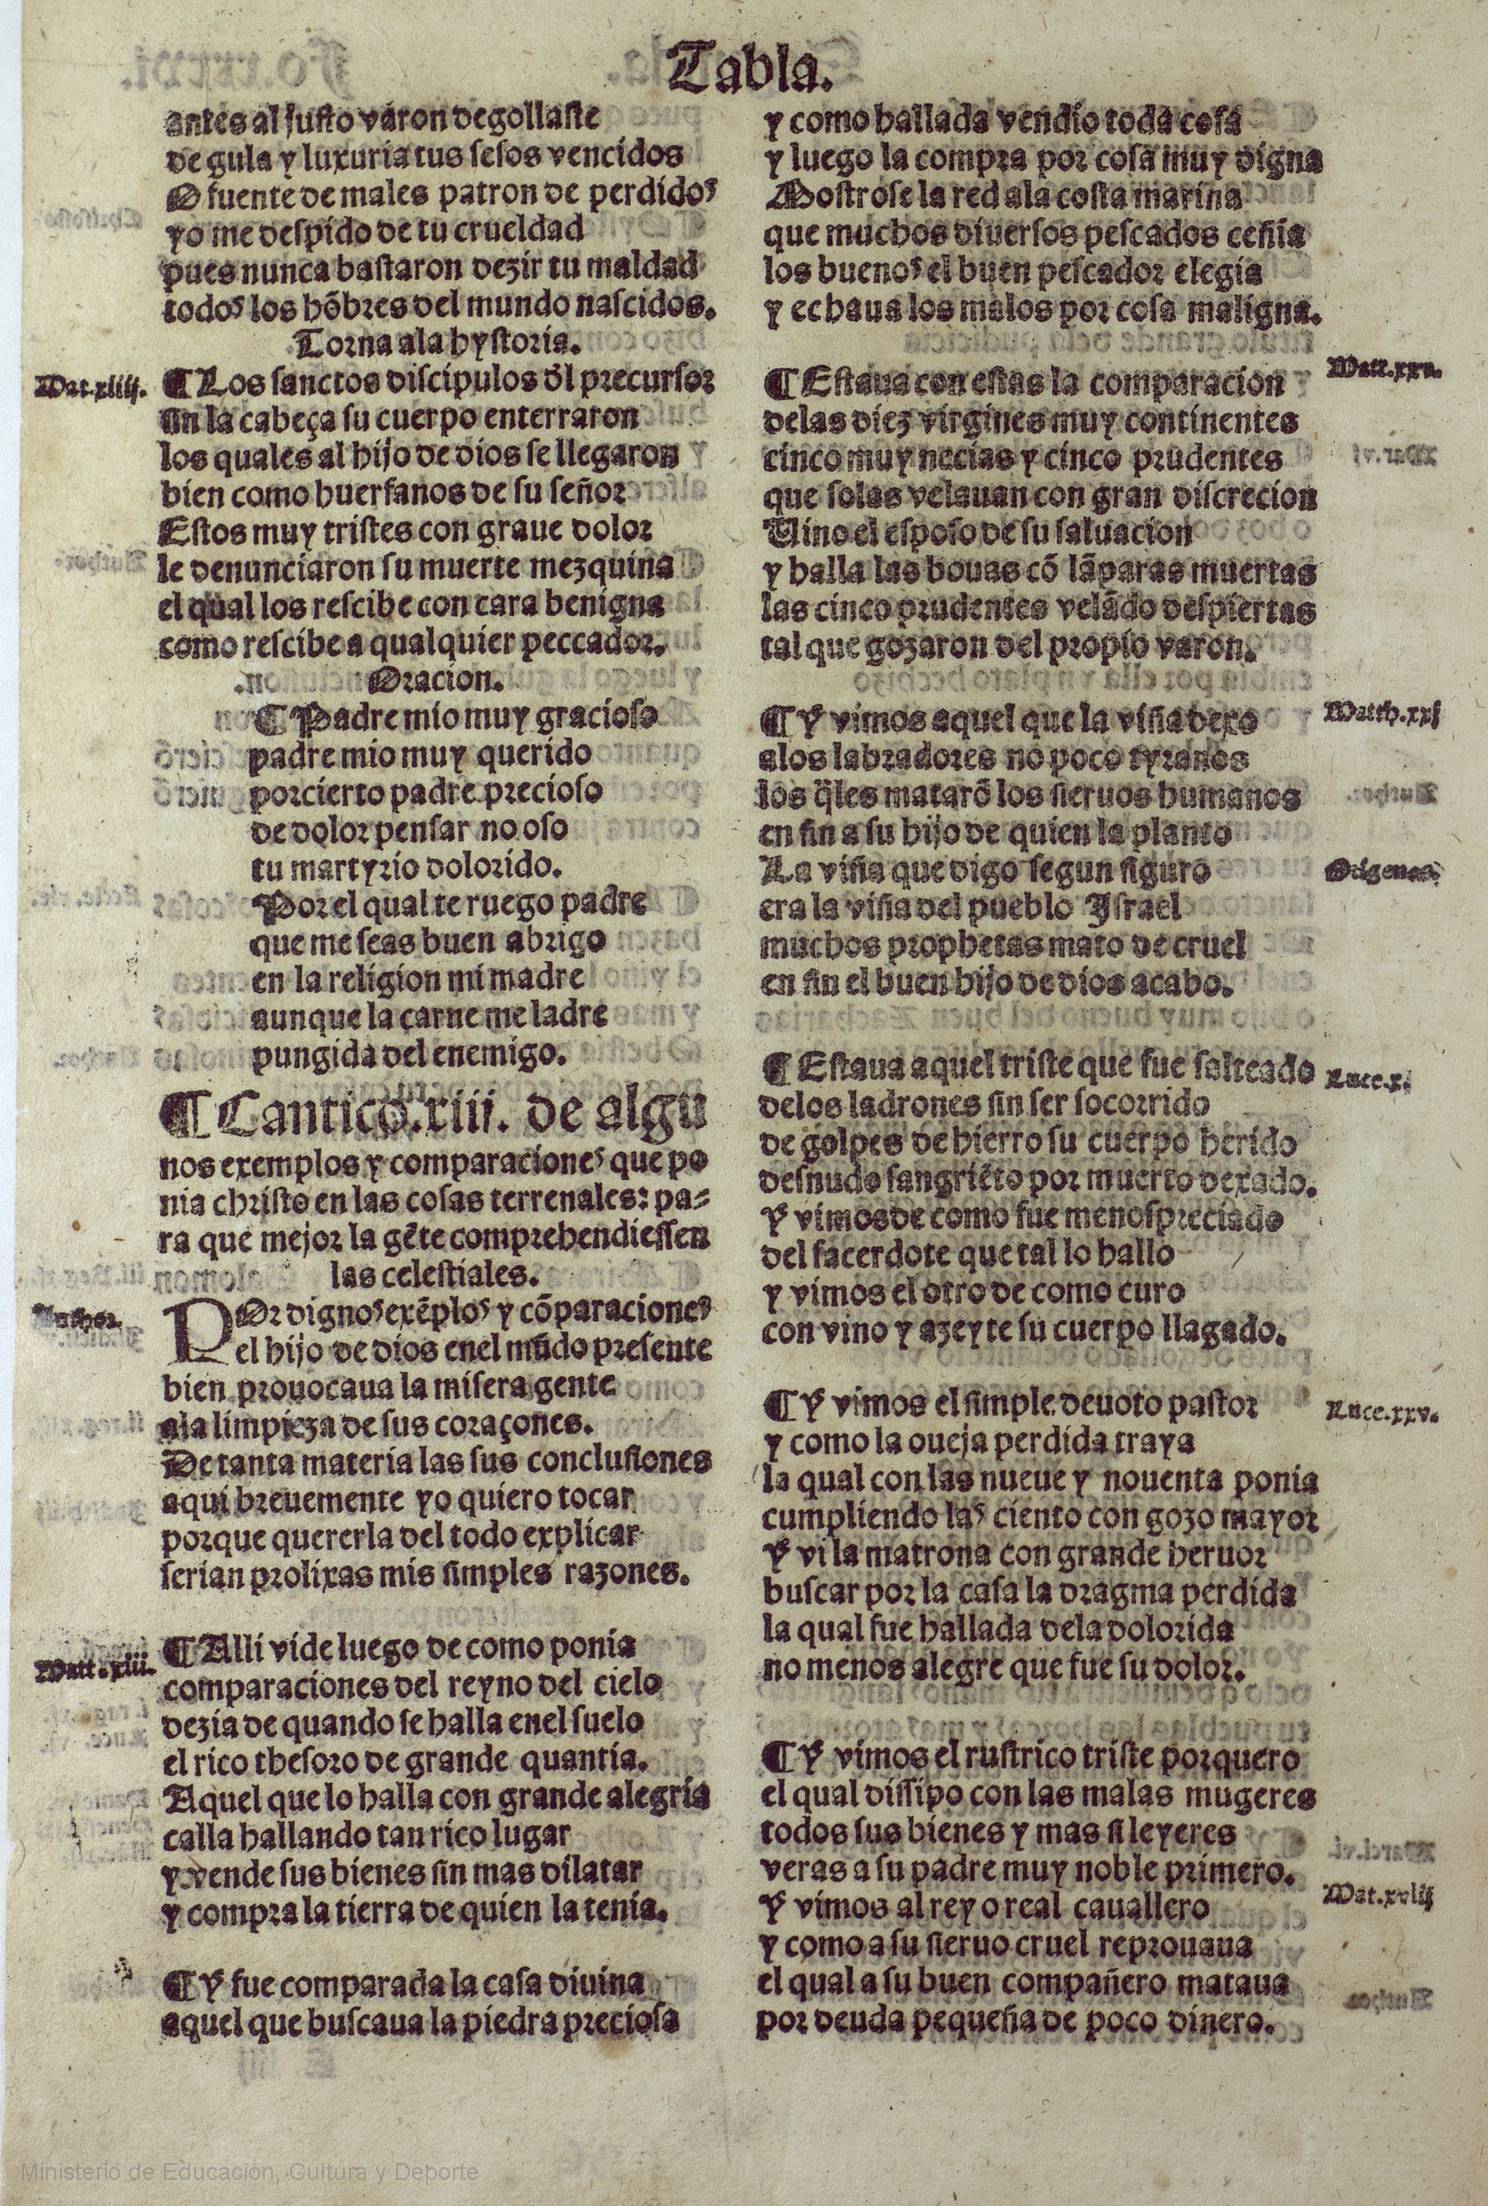 Tabla.
antes al justo varon degollaste
de gula y luxuria tus sesos vencidos
O fuente de males patron de perdidos
yo me despido de tu crueldad
pues nunca bastaron dezir tu maldad
todos los hõbres del mundo nascidos.
Torna ala hystoria.
Mat.xliij.
¶ Los sanctos discipulos dl precursor
sin la cabeça su cuerpo enterraron
los quales al hijo de dios se llegaron
bien como huerfanos de su señor
Estos muy tristes con graue dolor
le denunciaron su muerte mezquina
el qual los rescibe con cara benigna
como rescibe a qualquier peccador.
Oracion.
¶ Padre mio muy gracioso
padre mio muy querido
porcierto padre precioso
de dolor pensar no oso
tu martyrio dolorido.
Por el qual te ruego padre
que me seas buen abrigo
en la religion mi madre
aunque la carne me ladre
pungida del enemigo.
¶ Cantico.xiij. de algu
nos exemplos y comparaciones que po
nia christo en las cosas terrenales: pa-
ra que mejor la gẽte comprehendiessen
las celestiales.
Author.
POr dignos exẽplos y cõparaciones
el hijo de dios enel mũdo presente
bien prouocaua la misera gente
ala limpieza de sus coraçones.
De tanta materia las sus conclusiones
aqui breuemente yo quiero tocar
porque quererla del todo explicar
serian prolixas mis simples razones.
Matt.xiii.
¶ Alli vide luego de como ponia
comparaciones del reyno del cielo
dezia de quando se halla enel suelo
el rico thesoro de grande quantia.
Aquel que lo halla con grande alegria
calla hallando tan rico lugar
y vende sus bienes sin mas dilatar
y compra la tierra de quien la tenia.
¶ Y fue comparada la casa diuina
aquel que buscaua la piedra preciosa
y como hallada vendio toda cosa
y luego la compra por cosa muy digna
Mostrose la red ala costa marina
que muchos diuersos pescados ceñia
los buenos el buen pescador elegia
y echaua los malos por cosa maligna.
Matt.xxv.
¶ Estaua con estas la comparacion
delas diez virgines muy continentes
cinco muy necias y cinco prudentes
que solas velauan con gran discrecion
Uino el esposo de su saluacion
y halla las bouas cõ lãparas muertas
las cinco prudentes velãdo despiertas
tal que gozaron del propio varon.
Matth.xxj
¶ Y vimos aquel que la viña dexo
alos labradores no poco tyranos
los q̃les matarõ los sieruos humanos
en fin a su hijo de quien la planto
Origenes.
La viña que digo segun figuro
era la viña del pueblo Israel
muchos prophetas mato de cruel
en fin el buen hijo de dios acabo.
Luce.x.
¶ Estaua aquel triste que fue salteado
delos ladrones sin ser socorrido
de golpes de hierro su cuerpo herido
desnudo sangriẽto por muerto dexado.
Y vimos de como fue menospreciado
del sacerdote que tal lo hallo
y vimos el otro de como curo
con vino y azeyte su cuerpo llagado.
Luce.xxv.
¶ Y vimos el simple deuoto pastor
y como la oueja perdida traya
la qual con las nueue y nouenta ponia
cumpliendo las ciento con gozo mayor
Y vi la matrona con grande heruor
buscar por la casa la dragma perdida
la qual fue hallada dela dolorida
no menos alegre que fue su dolor.
¶ Y vimos el rustrico triste porquero
el qual dissipo con las malas mugeres
todos sus bienes y mas si leyeres
veras a su padre muy noble primero.
Mat.xviij
Y vimos al rey o real cauallero
y como a su sieruo cruel reprouaua
el qual a su buen compañero mataua
por deuda pequeña de poco dinero.
Ministerio de Educación, Cultura y Deporte